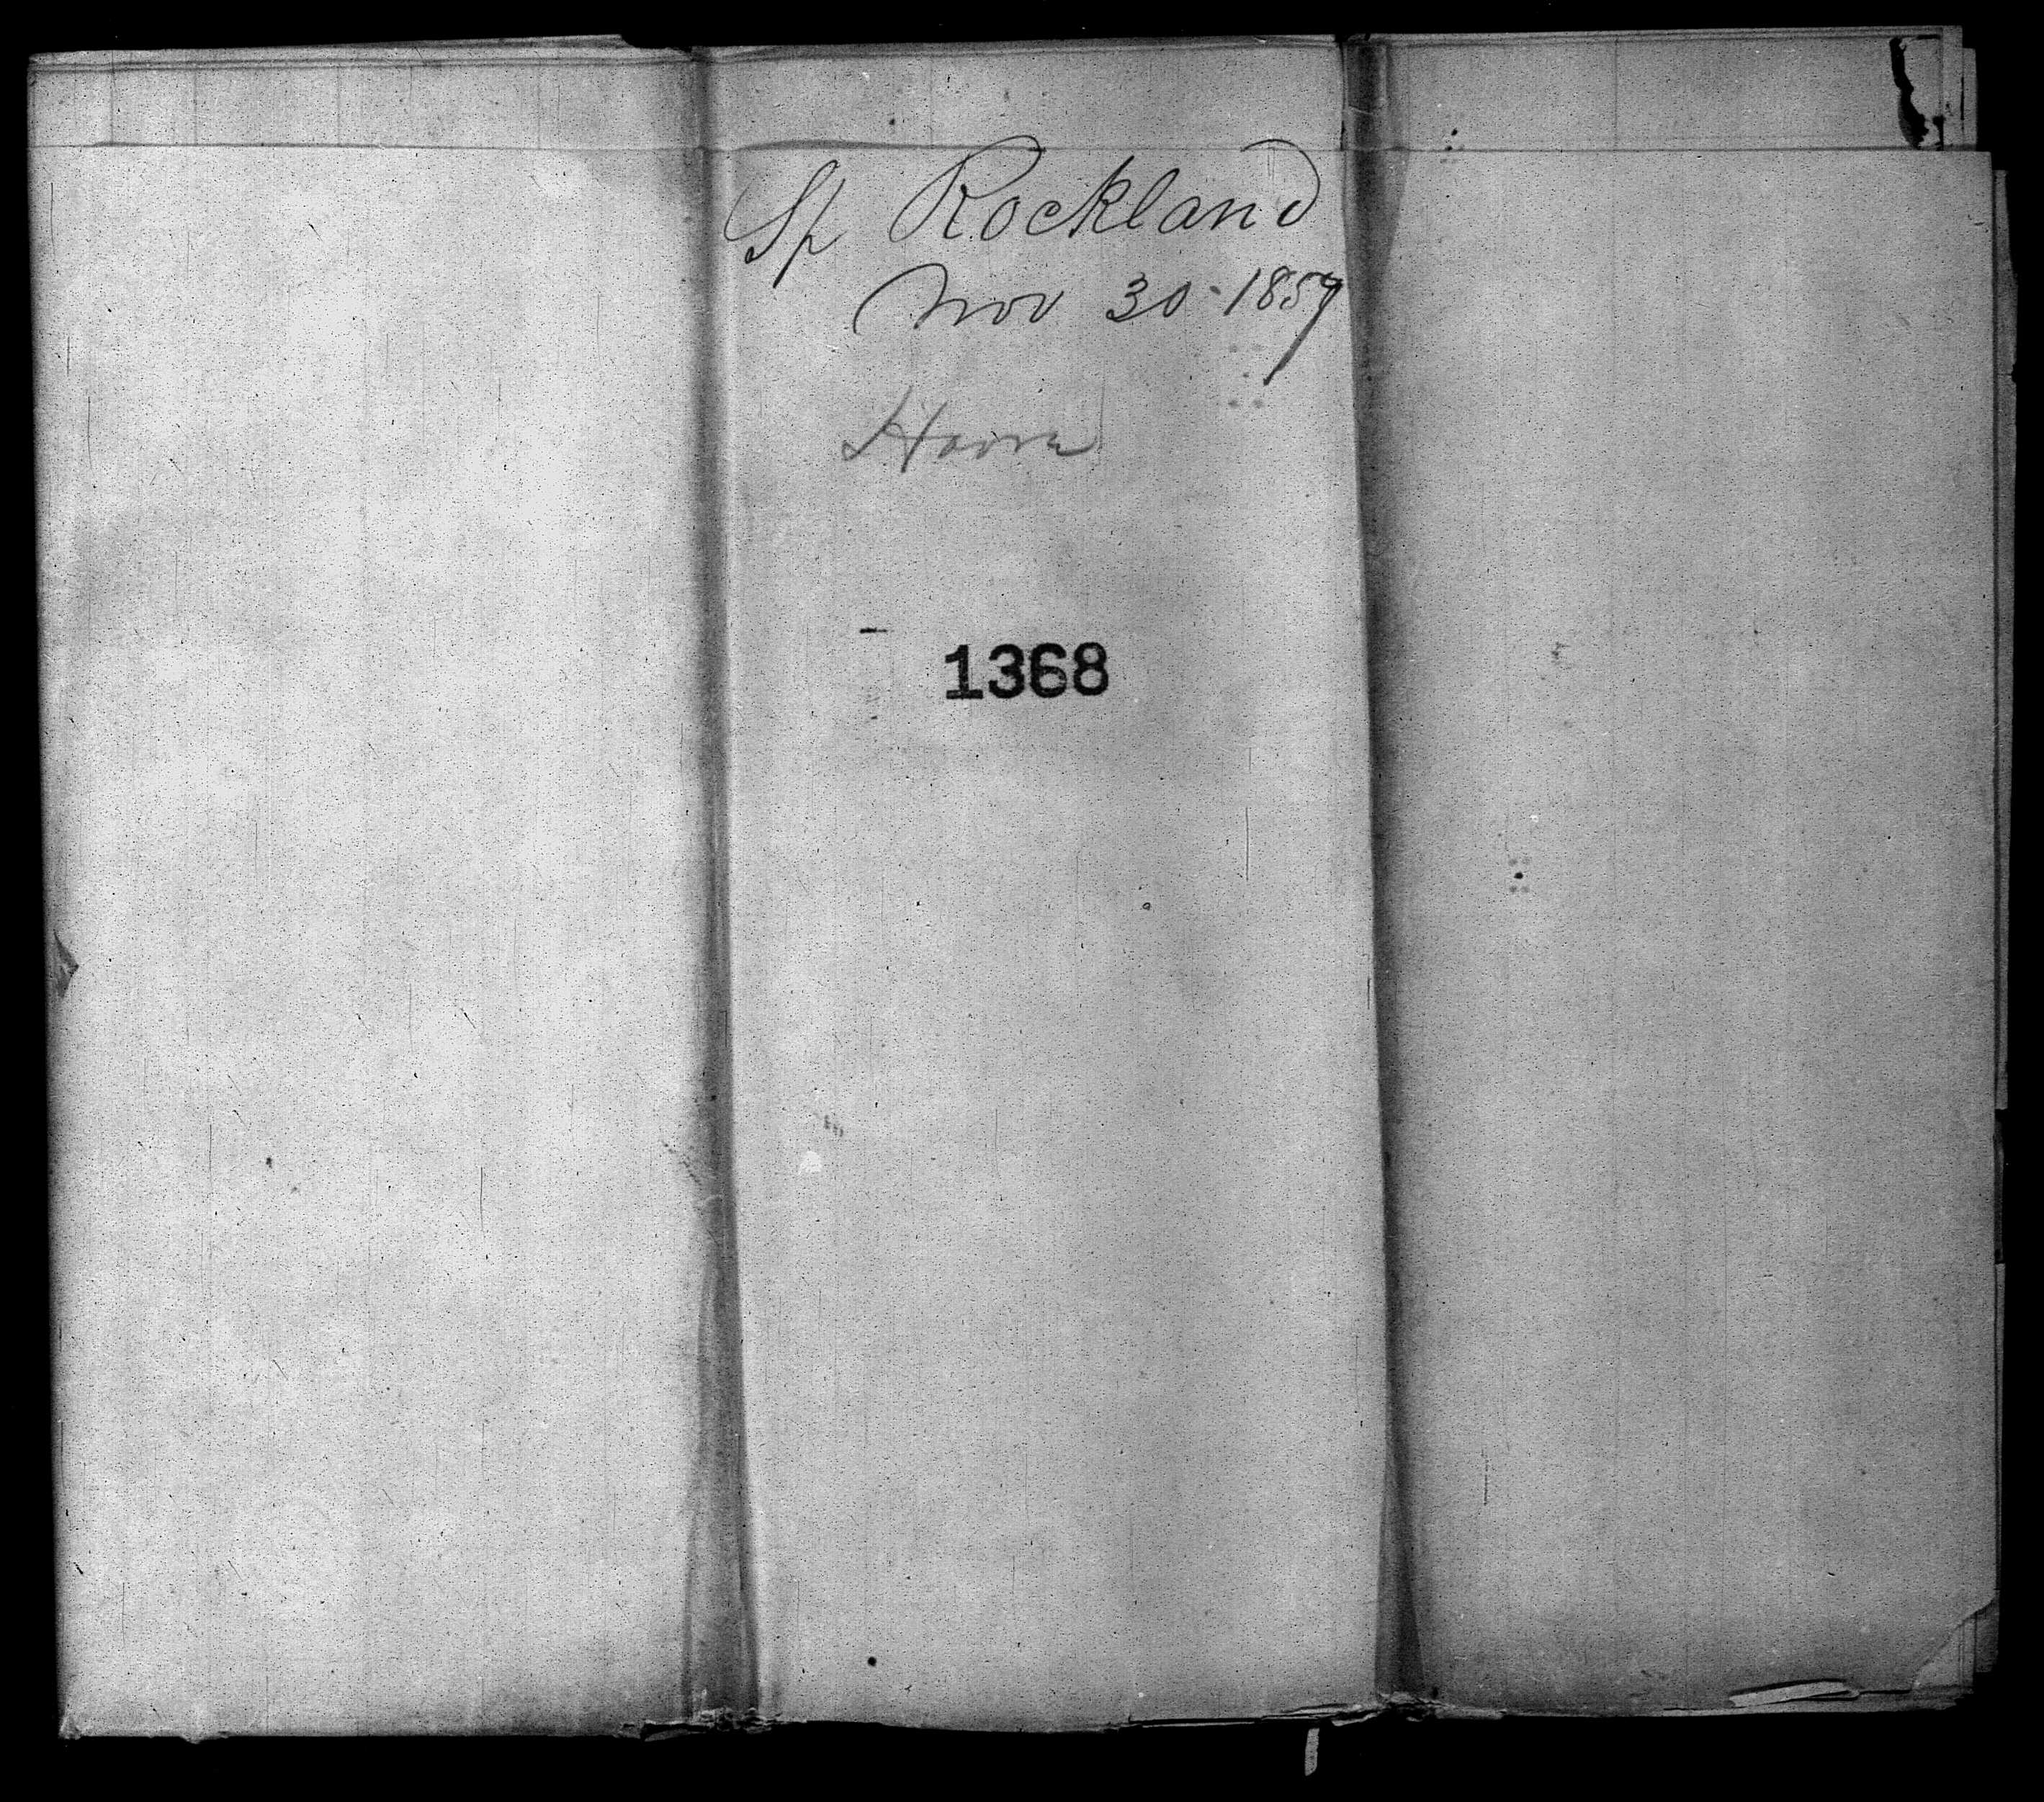 Sp Rockland
Nov 30 - 1859
1368